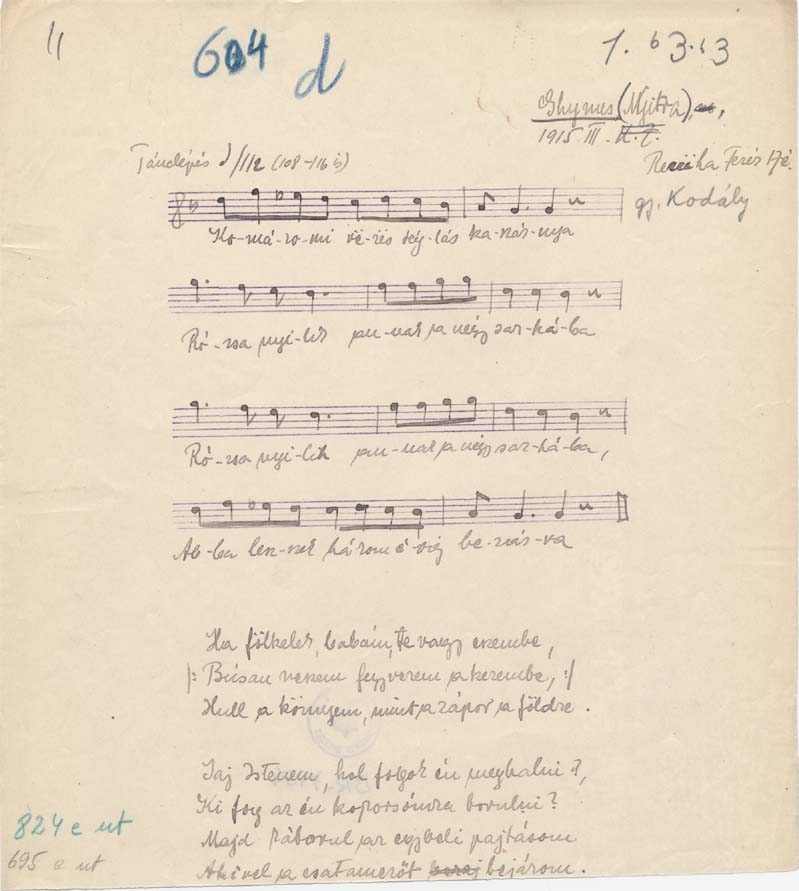 604
d
1. 63.63
Ghymes (Nyitra),
1915 III. K. Z.
Tánclépés /112 (108–116 is)
Ferenc 17é.
gy. Kodály
Ko-má-ro-mi vö-rös tég-lás ka-szár-nya
Ró-zsa nyi-lik an-nak a négy sar-ká-ba
Ró-zsa nyi-lik an-nak a négy sar-ká-ba,
Ab-ba le-szek három é-vig be-zár-va
Ha fölkelek, babám, te vagy eszembe,
|: Búsan veszem fegyverem a kezembe, :|
Hull a könnyem, mint a zápor a földre.
Jaj Istenem, hol fogok én meghalni?,
Ki fog az én koporsómra borulni?
Majd ráborul az egybeli pajtásom
Akivel a csatamezőt bejárom.
824 e ut
695 e ut